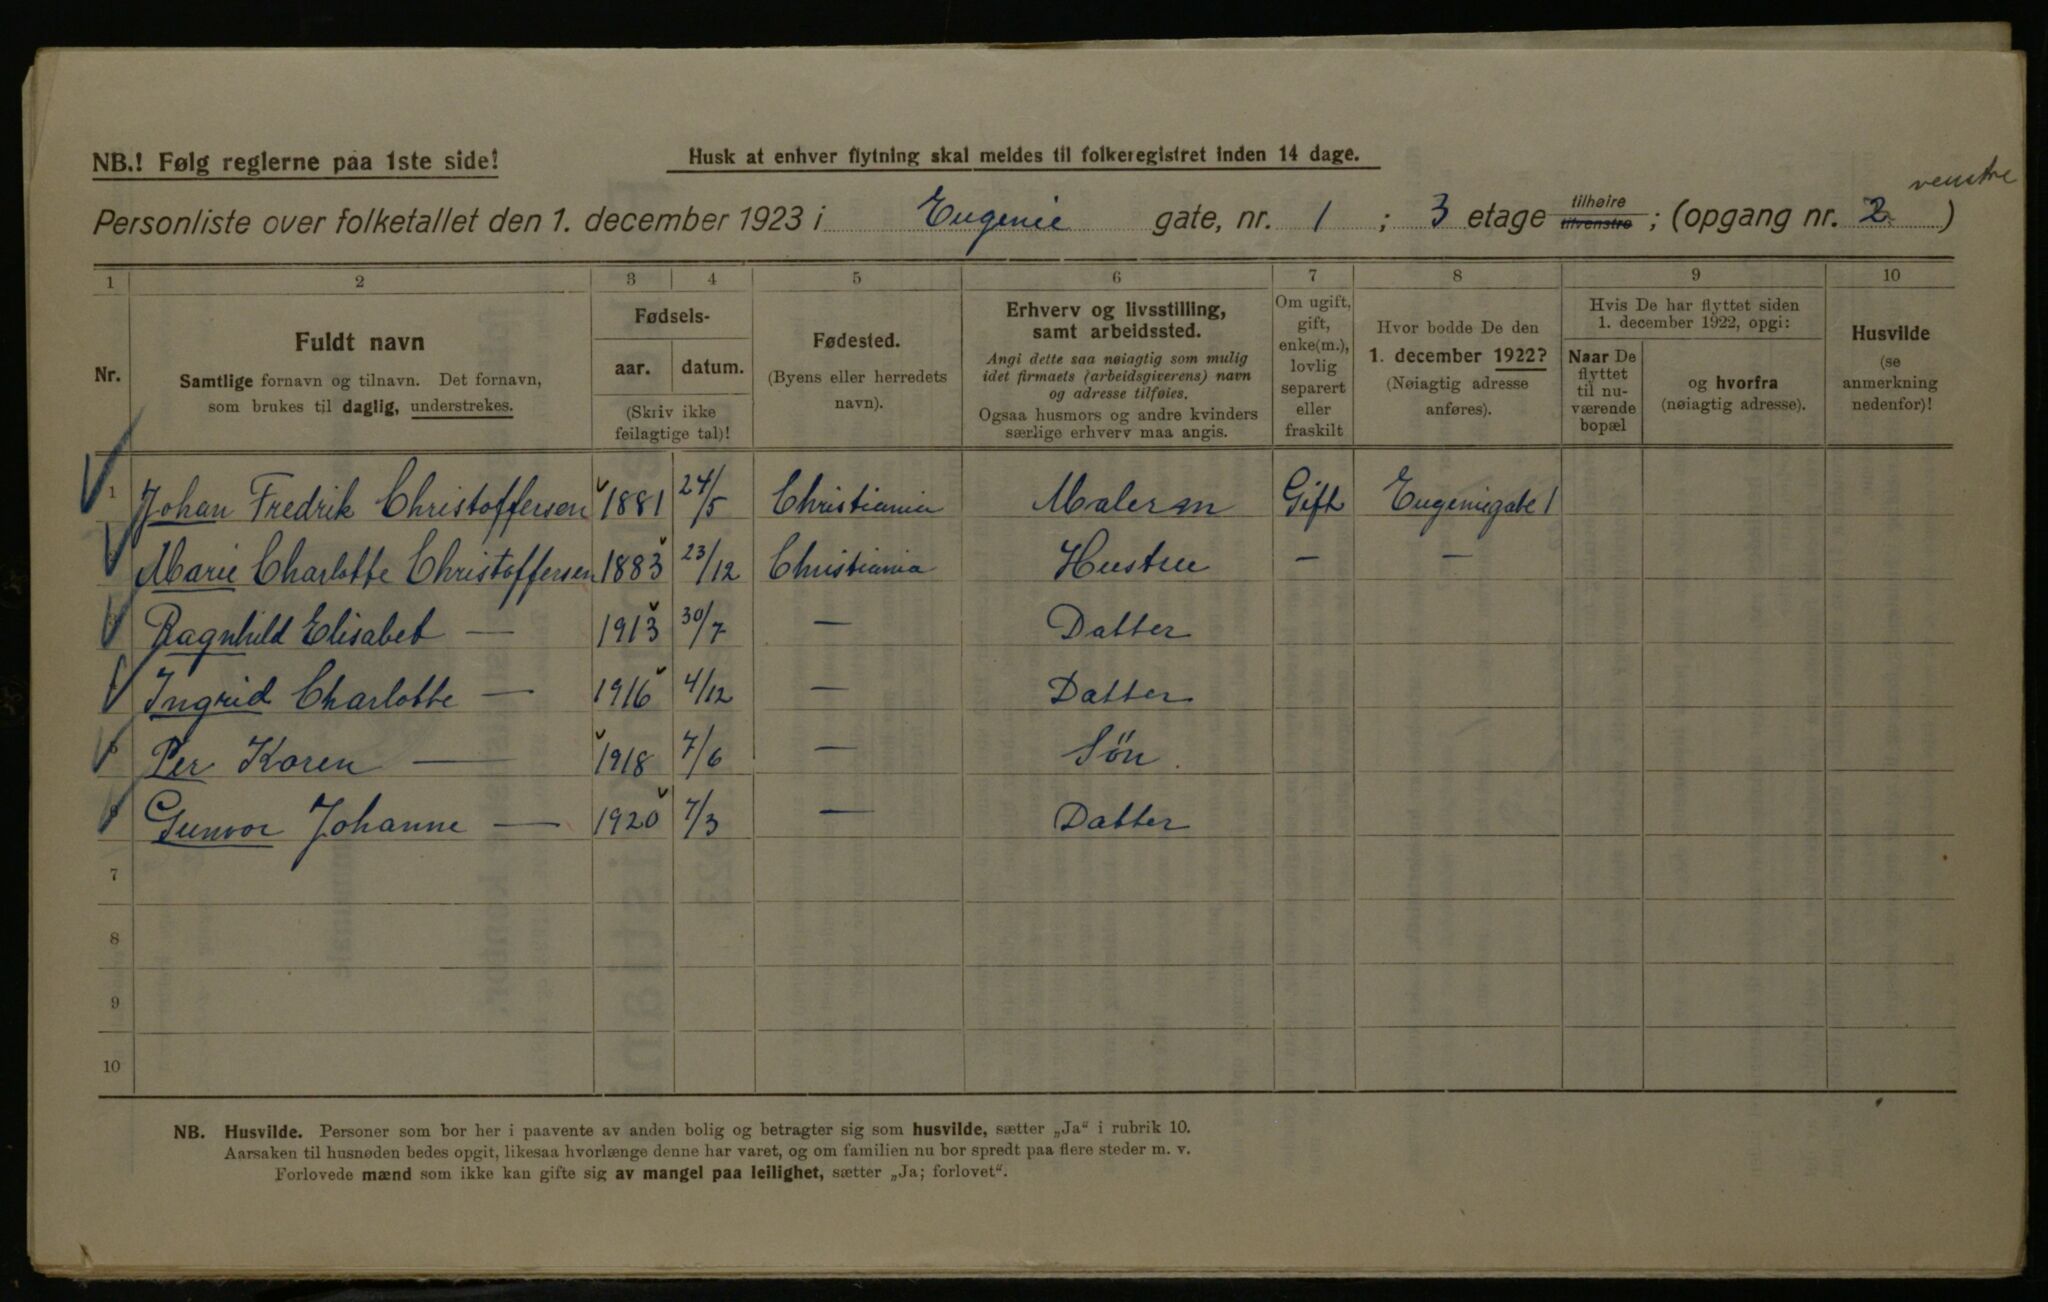 NB.! Følg reglerne paa 1ste side!
Husk at enhver flytning skal meldes til folkeregistret inden 14 dage.
venstre
Personliste over folketallet den 1. december 1923 i Eugenie gate, nr. 1 ; 3 etage tilhøire tilvenstre ; (opgang nr. 2 )
1 2 3 4 5 6 7 8 9 10
Nr.
Fuldt navn
Samtlige fornavn og tilnavn. Det fornavn,
som brukes til daglig, understrekes.
Fødsels-
aar. datum.
(Skriv ikke
feilagtige tal)!
Fødested.
(Byens eller herredets
navn).
Erhverv og livsstilling,
samt arbeidssted.
Angi dette saa nøiagtig som mulig
idet firmaets (arbeidsgiverens) navn
og adresse tilføies.
Ogsaa husmors og andre kvinders
særlige erhverv maa angis.
Om ugift,
gift,
enke(m.),
lovlig
separert
eller
fraskilt
Hvor bodde De den
1. december 1922?
(Nøiagtig adresse
anføres).
Hvis De har flyttet siden
1. december 1922, opgi:
Naar De
flyttet
til nu-
værende
bopæl
og hvorfra
(nøiagtig adresse).
Husvilde
(se
anmerkning
nedenfor)!
1 Johan Fredrik Christoffersen 1881 24/5 Christiania Malerm Gift Eugeniegate 1
2 Marie Charlotte Christoffersen 1883 23/12 Christiania Hustru — —
3 Ragnhild Elisabet — 1913 30/7 — Datter
4 Ingrid Charlotte — 1916 4/12 — Datter
5 Per Koren — 1918 7/6 — Søn
6 Gunvor Johanne — 1920 7/3 — Datter
7
8
9
10
NB. Husvilde. Personer som bor her i paavente av anden bolig og betragter sig som husvilde, sætter „Ja“ i rubrik 10.
Aarsaken til husnøden bedes opgit, likesaa hvorlænge denne har varet, og om familien nu bor spredt paa flere steder m. v.
Forlovede mænd som ikke kan gifte sig av mangel paa leilighet, sætter „Ja; forlovet“.